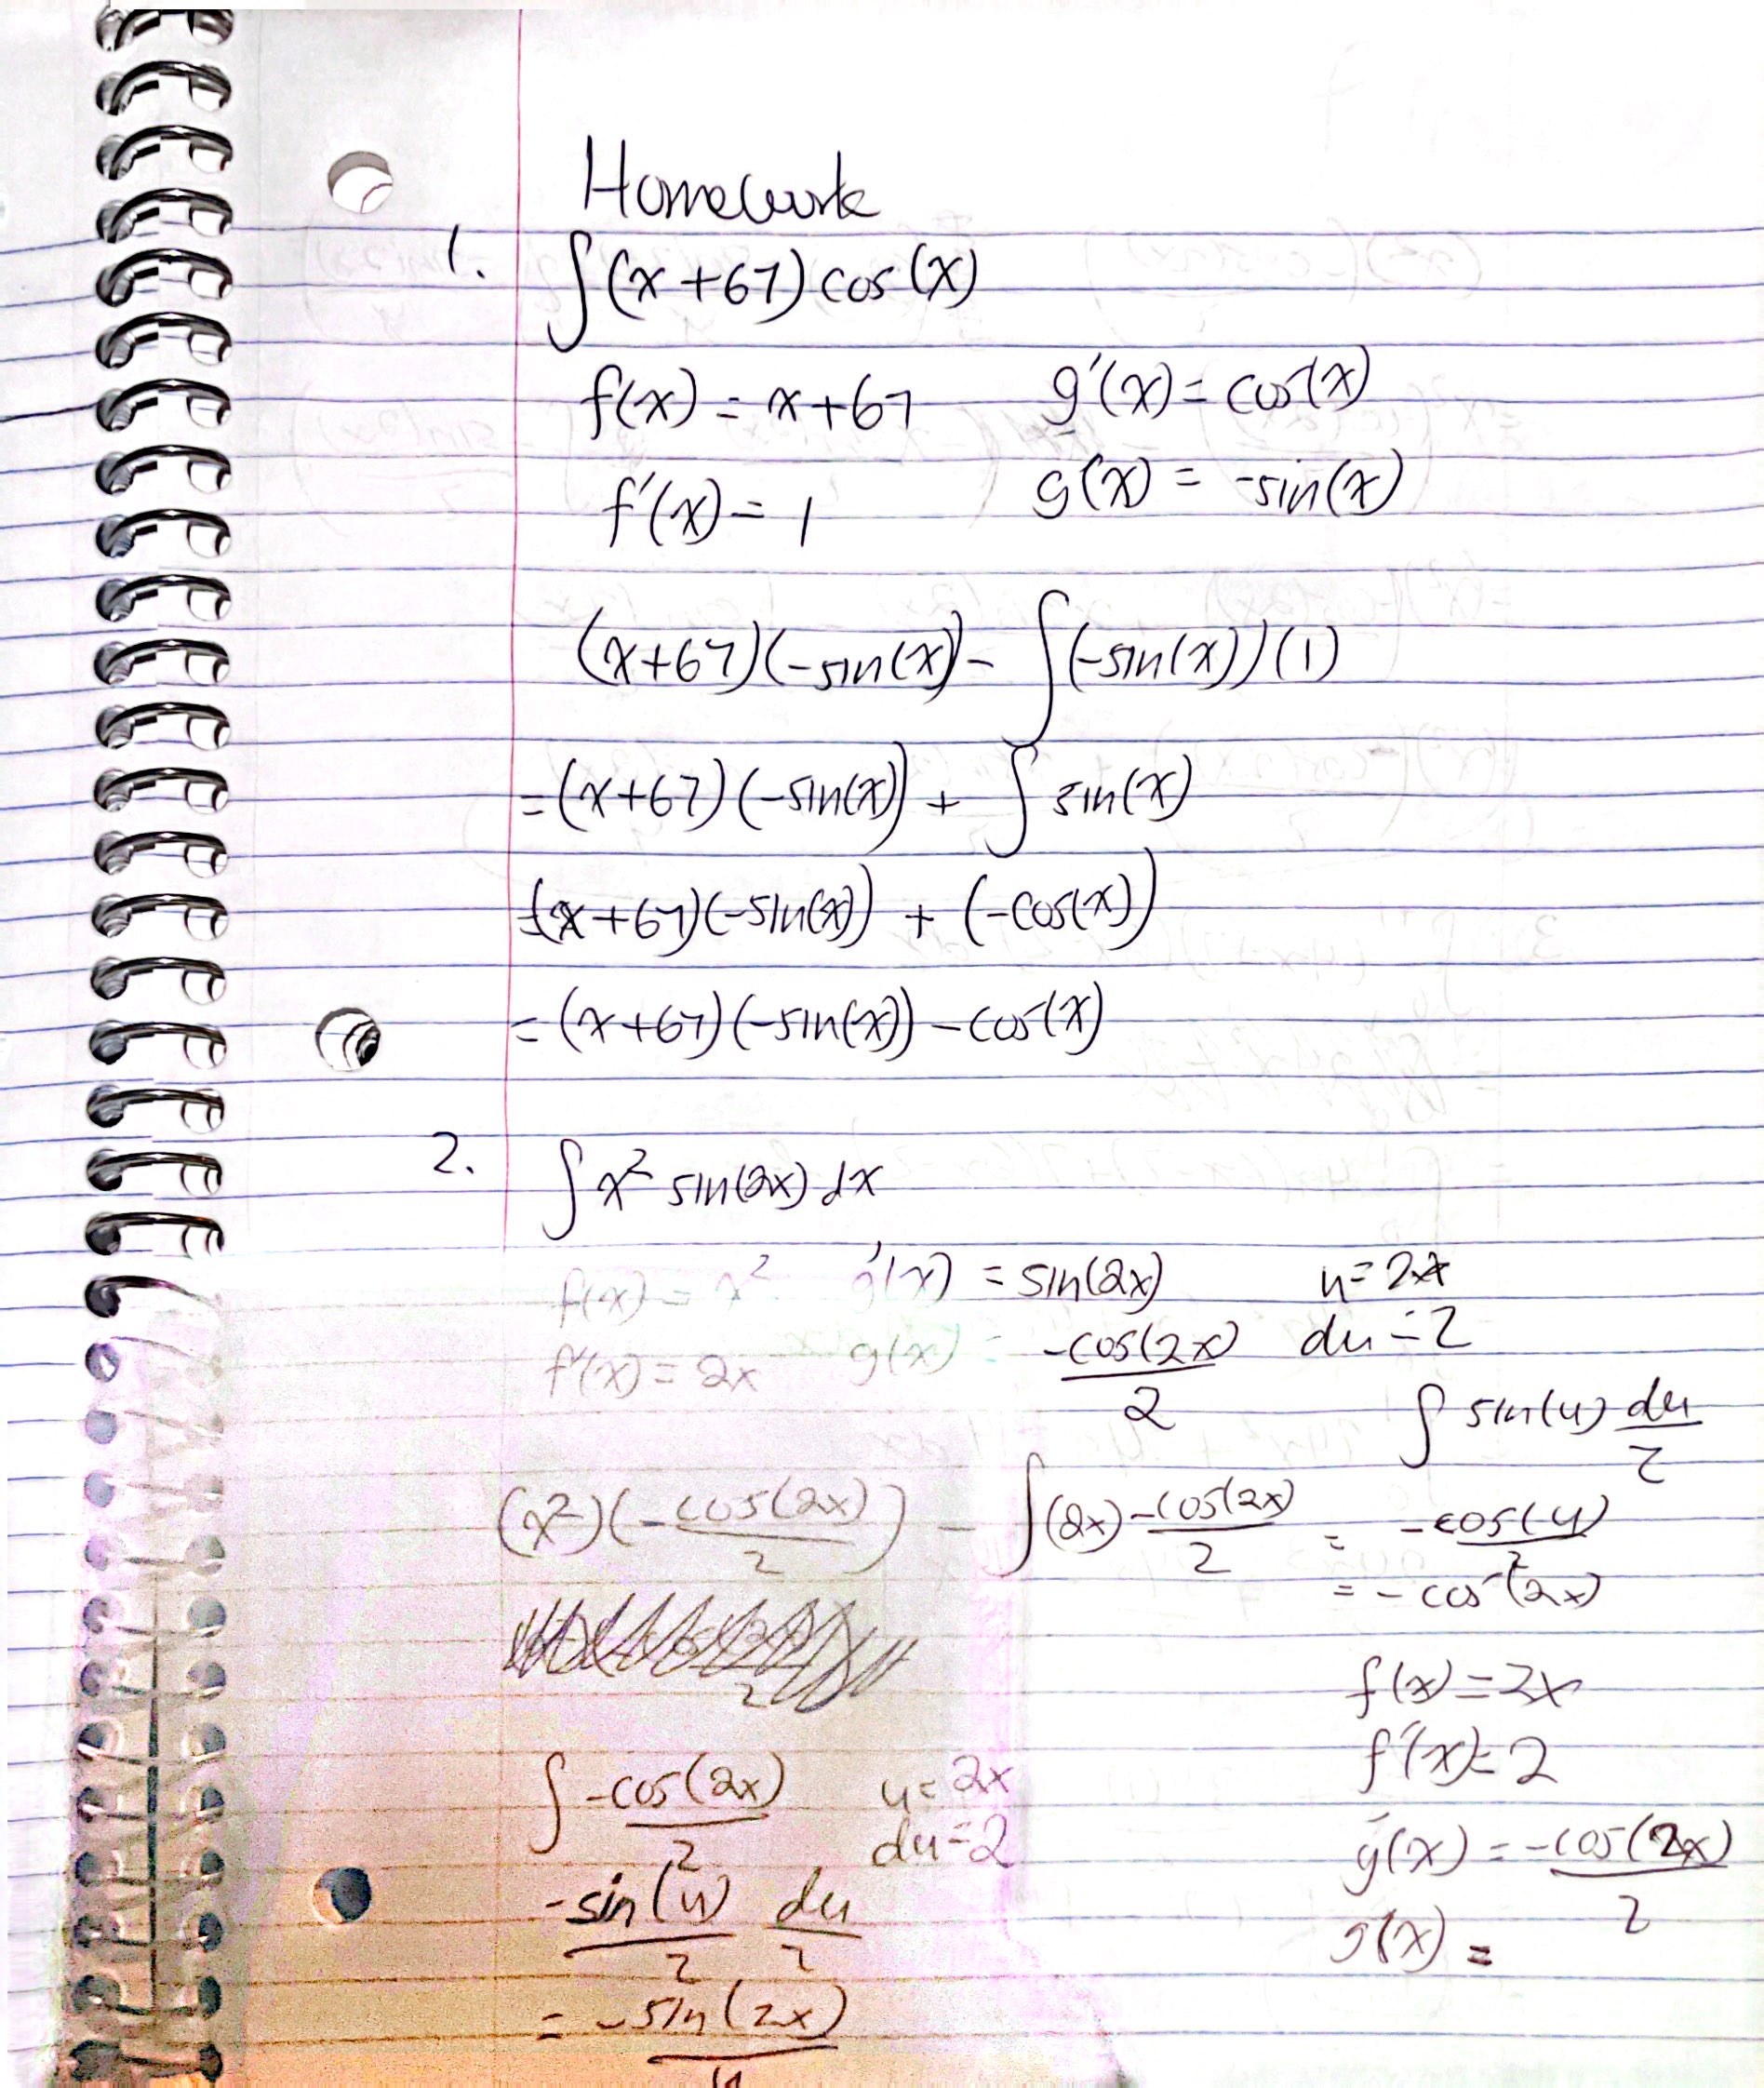 Homework
1. ∫(x+67)cos(x)
f(x) = x+67 g'(x) = cos(x)
f'(x) = 1 g(x) = -sin(x)
(x+67)(-sin(x)) - ∫(-sin(x))(1)
= (x+67)(-sin(x)) + ∫ sin(x)
=(x+67)(-sin(x)) + (-cos(x))
= (x+67)(-sin(x)) - cos(x)
2. ∫ x² sin(2x) dx
f(x) = x² g'(x) = sin(2x) u = 2x
f'(x) = 2x g(x) = -cos(2x)/2 du = 2
∫ sin(u) du/2
(x²)(-cos(2x)/2) - ∫(2x) -cos(2x)/2 = -cos(u)/2
= -cos(2x)
f(x) = 2x
f'(x) = 2
∫ -cos(2x)/2 u = 2x
du = 2
g'(x) = -cos(2x)/2
-sin(u)/2 du/2
g(x) =
= -sin(2x)/4